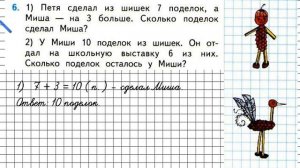 6. 1) Петя сделал из шишек 7 поделок, а
Миша — на 3 больше. Сколько поделок
сделал Миша?
2) У Миши 10 поделок из шишек. Он от-
дал на школьную выставку 6 из них.
Сколько поделок осталось у Миши?
1) 7 + 3 = 10 (п.) - сделал Миша
Ответ: 10 поделок.